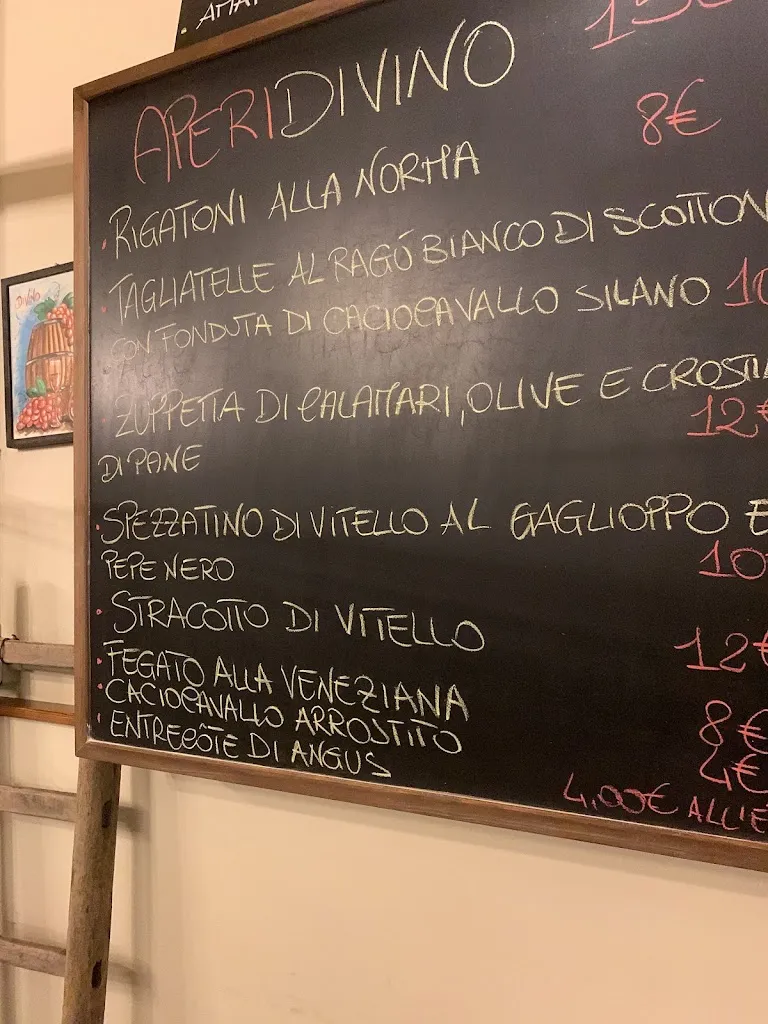 APERIDIVINO
8€
• RIGATONI ALLA NORMA
• TAGLIATELLE AL RAGÚ BIANCO DI SCOTTON
CON FONDUTA DI CACIOCAVALLO SILANO 10
• ZUPPETTA DI CALAMARI, OLIVE E CROSTI
12€
DI PANE
• SPEZZATINO DI VITELLO AL GAGLIOPPO E
PEPE NERO 10
• STRACOTTO DI VITELLO 12€
• FEGATO ALLA VENEZIANA 8€
• CACIOCAVALLO ARROSTITO 4€
• ENTRECÔTE DI ANGUS 4,00€ ALL'E
DIVINO